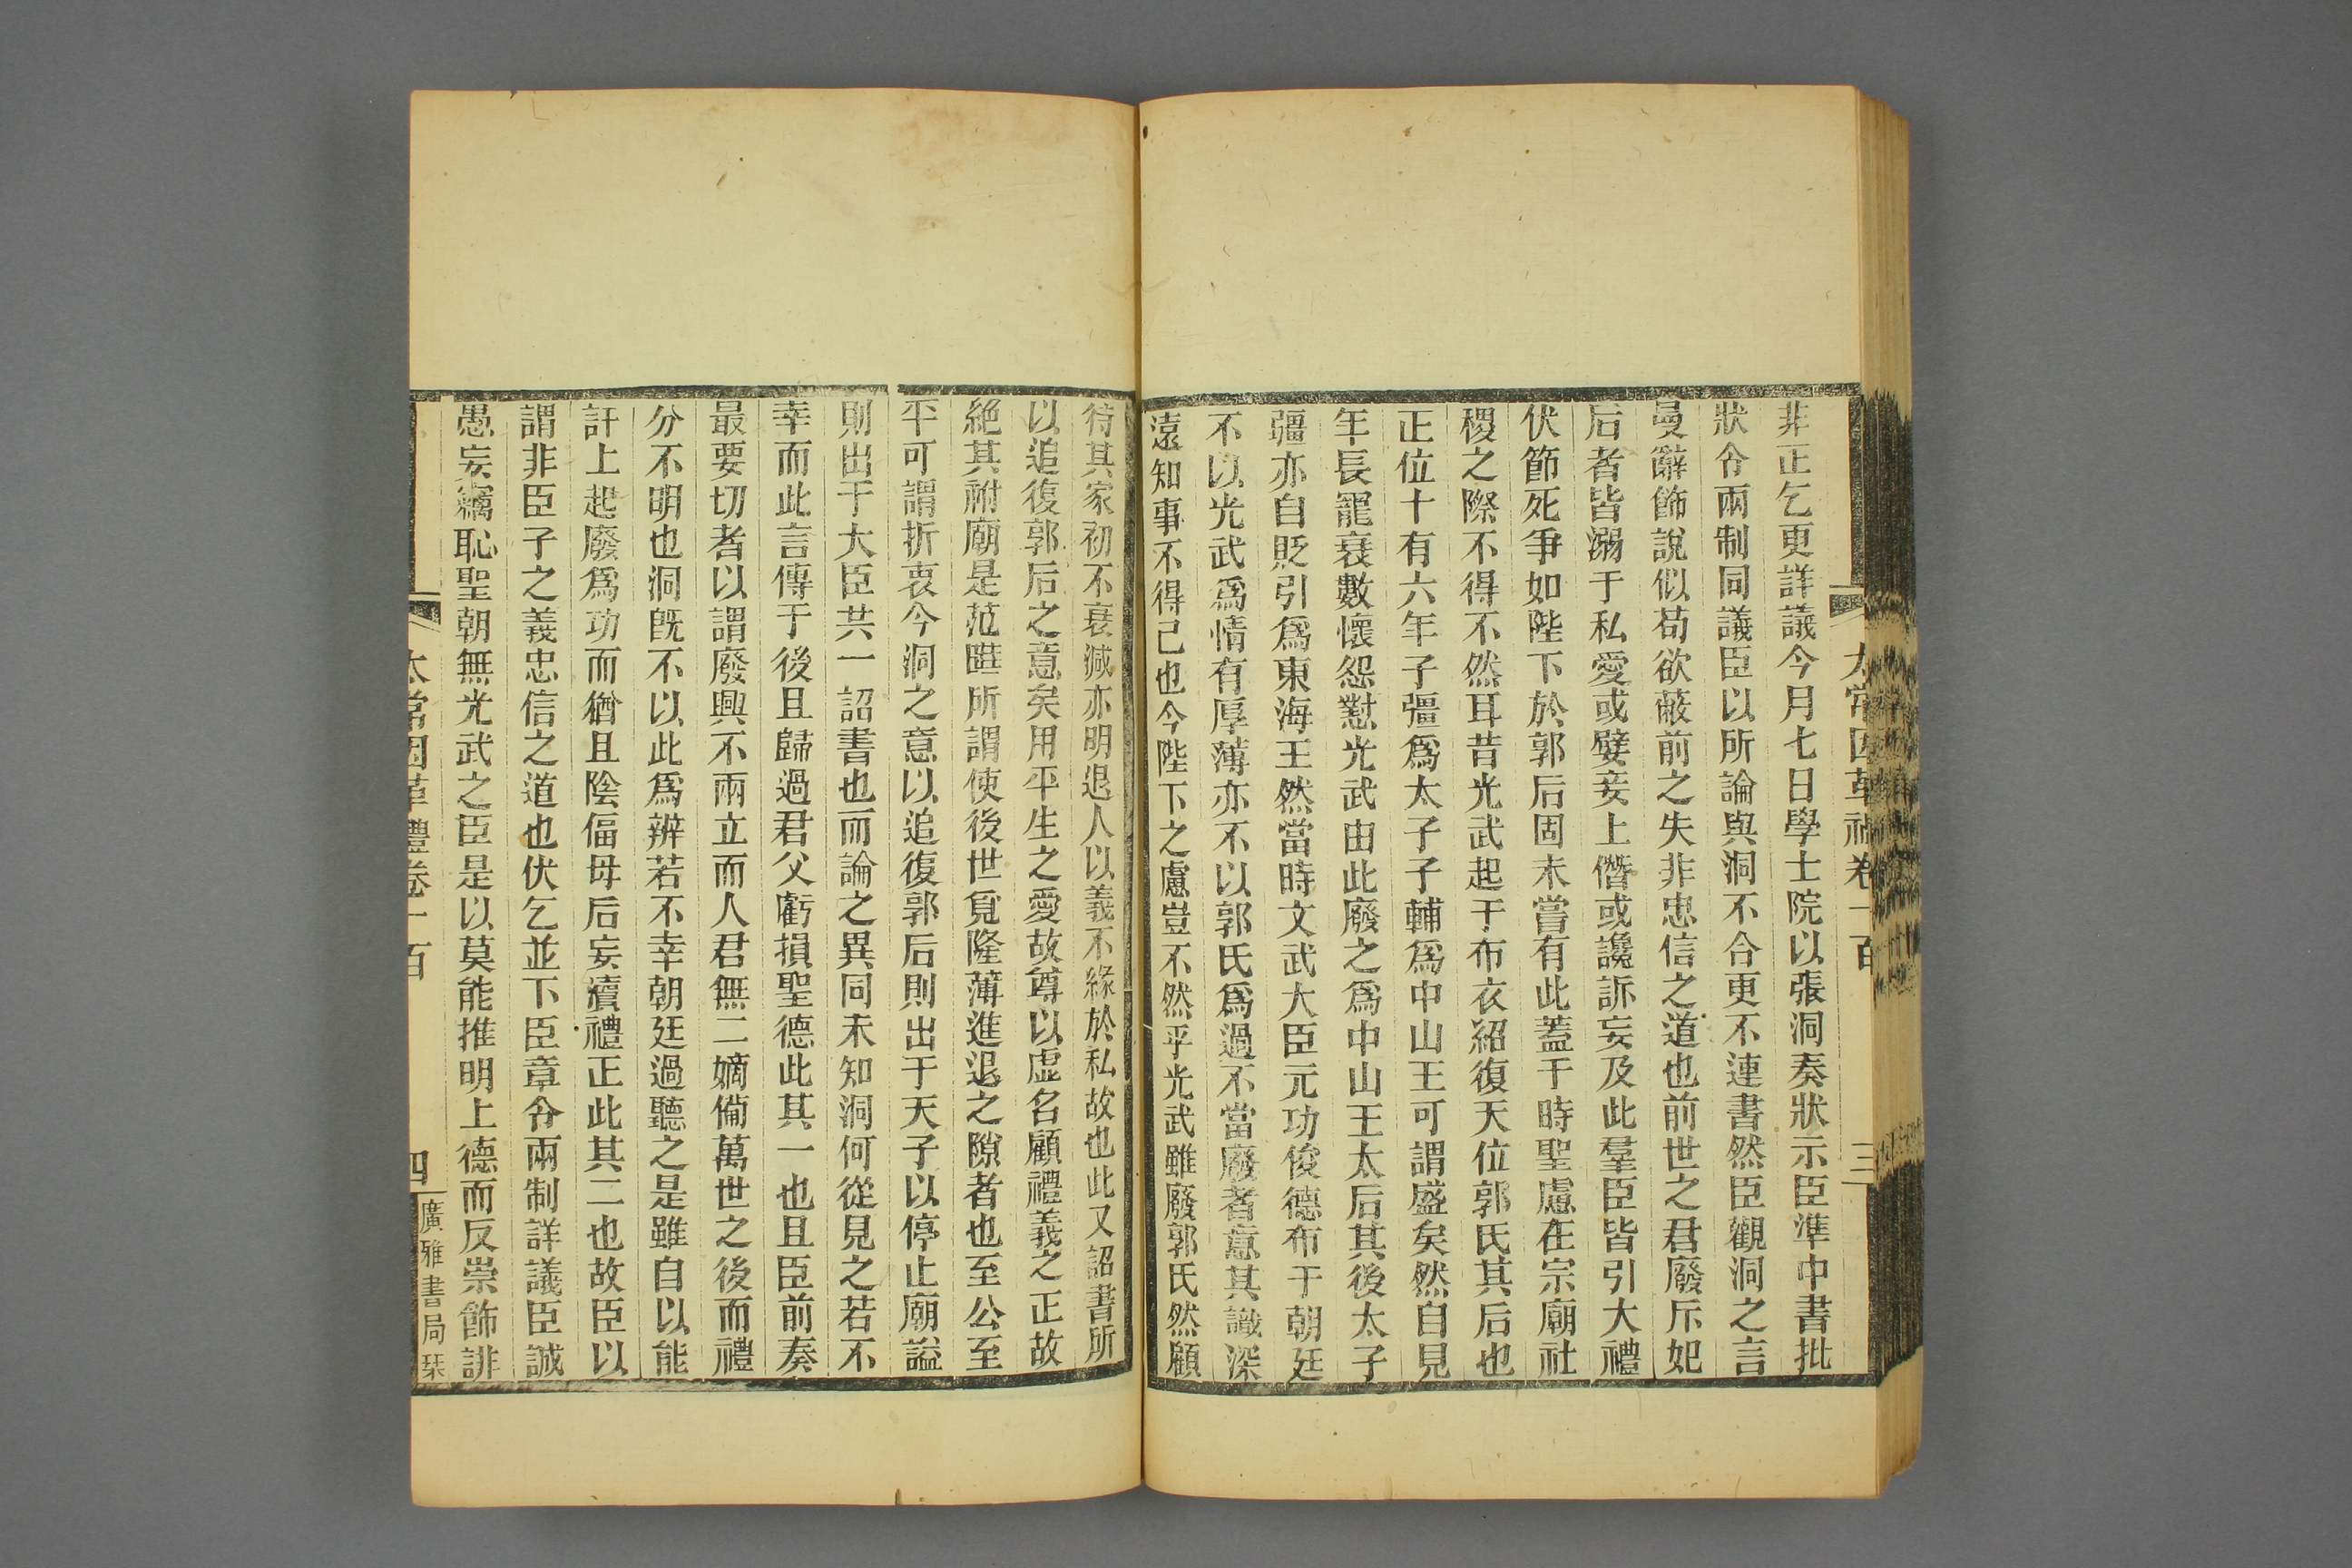 太常因革禮卷一百 三
非正乞更詳議今月七日學士院以張洞奏狀示臣準中書批
狀令兩制同議臣以所論與洞不合更不連書然臣觀洞之言
曼辭飾說似苟欲蔽前之失非忠信之道也前世之君廢斥妃
后者皆溺于私愛或嬖妾上僭或讒訴妄及此羣臣皆引大禮
伏節死爭如陛下於郭后固未嘗有此蓋于時聖慮在宗廟社
稷之際不得不然耳昔光武起于布衣紹復天位郭氏其后也
正位十有六年子彊爲太子子輔爲中山王可謂盛矣然自見
年長寵衰數懷怨懟光武由此廢之爲中山王太后其後太子
疆亦自貶引爲東海王然當時文武大臣元功俊德布于朝廷
不以光武爲情有厚薄亦不以郭氏爲過不當廢者意其識深
遠知事不得已也今陛下之慮豈不然乎光武雖廢郭氏然顧
待其家初不衰減亦明退人以義不緣於私故也此又詔書所
以追復郭后之意矣用平生之愛故尊以虛名顧禮義之正故
絕其祔廟是范曄所謂使後世覓隆薄進退之隙者也至公至
平可謂折衷今洞之意以追復郭后則出于天子以停止廟謚
則出于大臣共一詔書也而論之異同未知洞何從見之若不
幸而此言傳于後且歸過君父虧損聖德此其一也且臣前奏
最要切者以謂廢興不兩立而人君無二嫡備萬世之後而禮
分不明也洞既不以此爲辨若不幸朝廷過聽之是雖自以能
訐上起廢爲功而猶且陰偪母后妄瀆禮正此其二也故臣以
謂非臣子之義忠信之道也伏乞並下臣章令兩制詳議臣誠
愚妄竊恥聖朝無光武之臣是以莫能推明上德而反崇飾誹
太常因革禮卷一百 四 廣雅書局栞